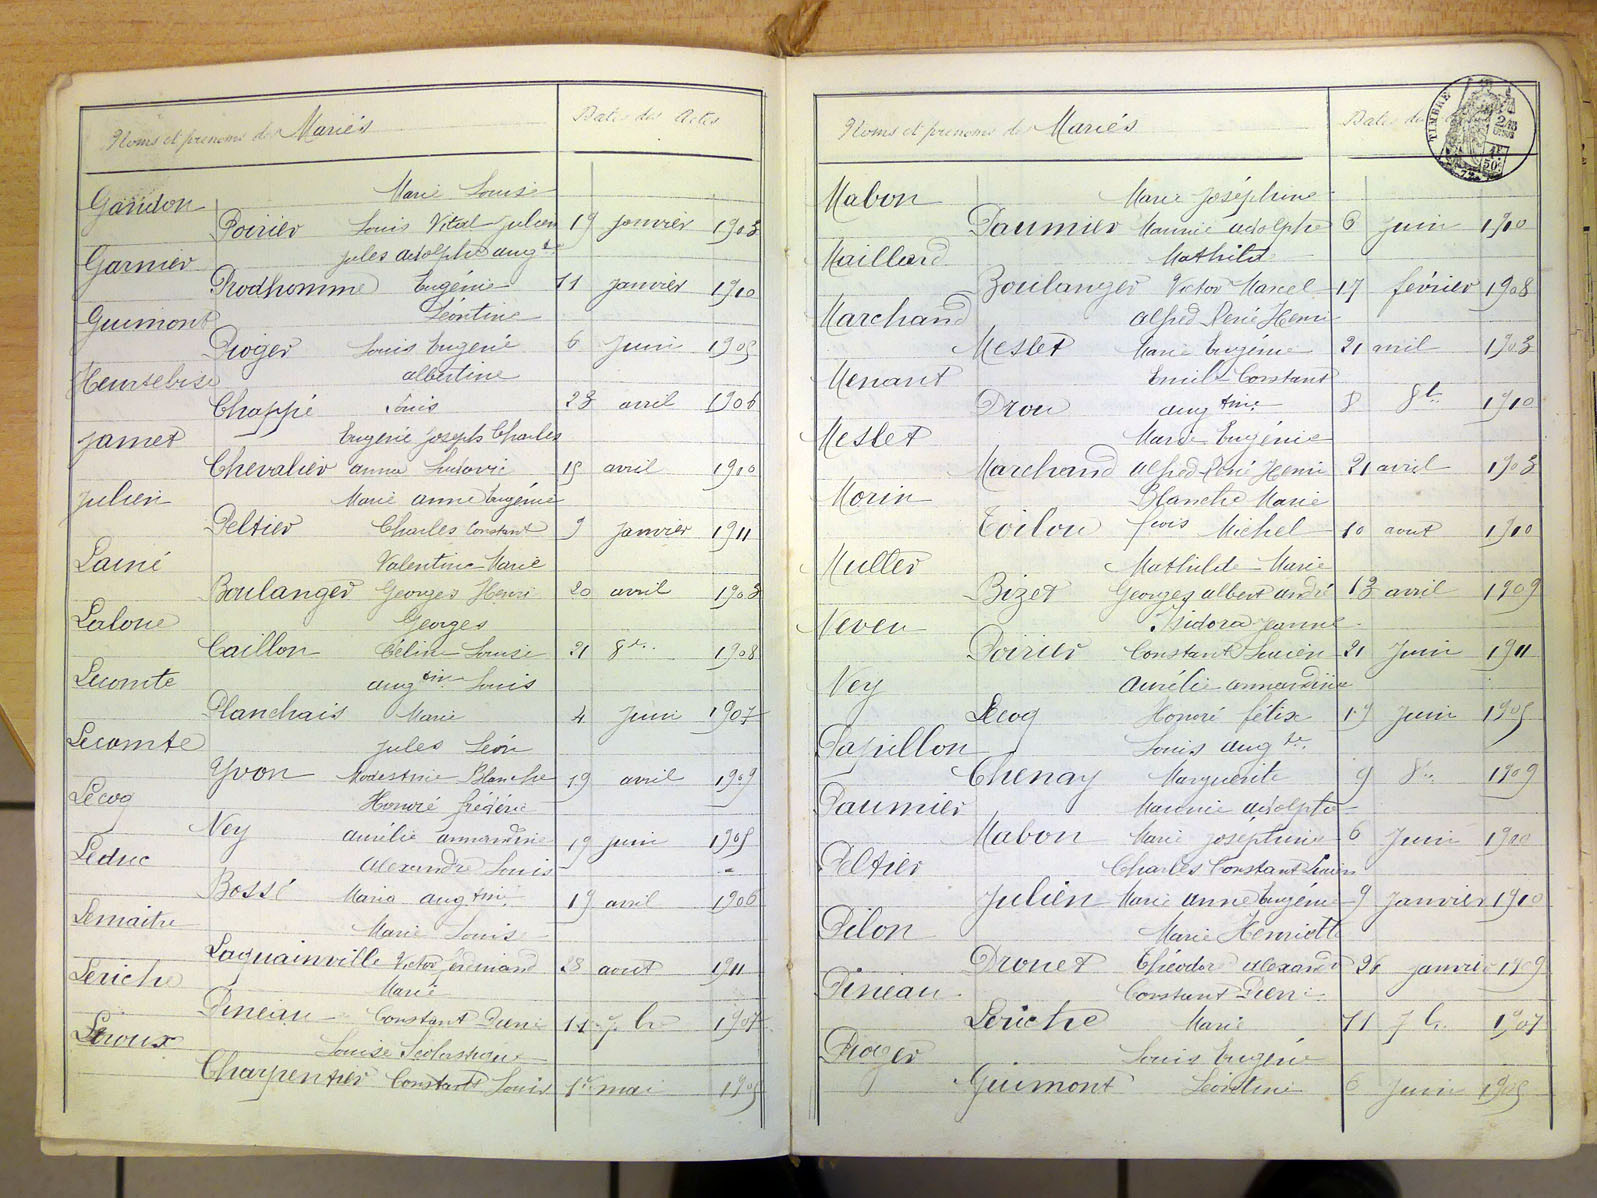 Noms et prenoms des Mariés Dates des Actes
Gandon Marie Louise
Poirier Louis Vital Julien 19 janvier 1903
Garnier Jules adolphe augte
Prodhomme Eugénie 11 janvier 1910
Guimont Léontine
Proger Louis Eugené 6 Juin 1905
Heurtebise albertine
Chappé Louis 23 avril 1906
Jamet Eugene Joseph Charles
Chevalier anna Ludovic 15 avril 1910
Julien Marie anne Eugénie
Peltier Charles Constant 9 janvier 1911
Lainé Valentine Marie
Boulanger Georges Henri 20 avril 1903
Laloue Georges
Caillon Céline Louise 21 8bre 1908
Lecomte augtin Louis
Planchais Marie 4 Juin 1907
Lecomte Jules Léon
Yvon Modestine Blanche 19 avril 1909
Lecoq Honoré
Ney aurélie armandine 19 juin 1905
Leduc alexandre Louis
Bossé Maria augtine 19 avril 1906
Lemaitre Marie Louise
Laquainville Victor ferdinand 28 aout 1911
Leriche Marie
Pineau Constant Pierre 11 7bre 1907
Leroux Louise Scolastique
Charpentier Constant Louis 1er mai 1905
Noms et prenoms des Mariés Dates des
TIMBRE
Mabon Marie Joséphine
Paumier Maurice adolphe 6 Juin 1910
Maillard Mathilde
Boulanger Victor Marcel 17 février 1908
Marchand alfred René Henri
Meslet Marie Eugénie 21 avril 1903
Menant Emile Constant
Drou augtine 8 8bre 1910
Meslet Marie Eugénie
Marchand alfred René Henri 21 avril 1903
Morin Blanche Marie
Toilou fçois Michel 10 aout 1910
Muller Mathilde Marie
Bizet Georges albert andré 13 avril 1909
Neveu Isidora Jeanne
Poirier Constant Lucien 21 Juin 1911
Ney aurélie armandine
Lecoq Honoré félix 19 Juin 1905
Papillon Louis augte
Chenay Marguerite 9 8bre 1909
Paumier Maurice adolphe
Mabon Marie Joséphine 6 Juin 1900
Peltier Charles Constant Lucien
Julien Marie anne Eugénie 9 Janvier 1910
Pilon Marie Henriette
Drouet Théodore alexandre 26 janvier 1909
Pineau Constant Pierre
Leriche Marie 11 7bre 1907
Proger Louis Eugéne
Guimont Léontine 6 Juin 1905